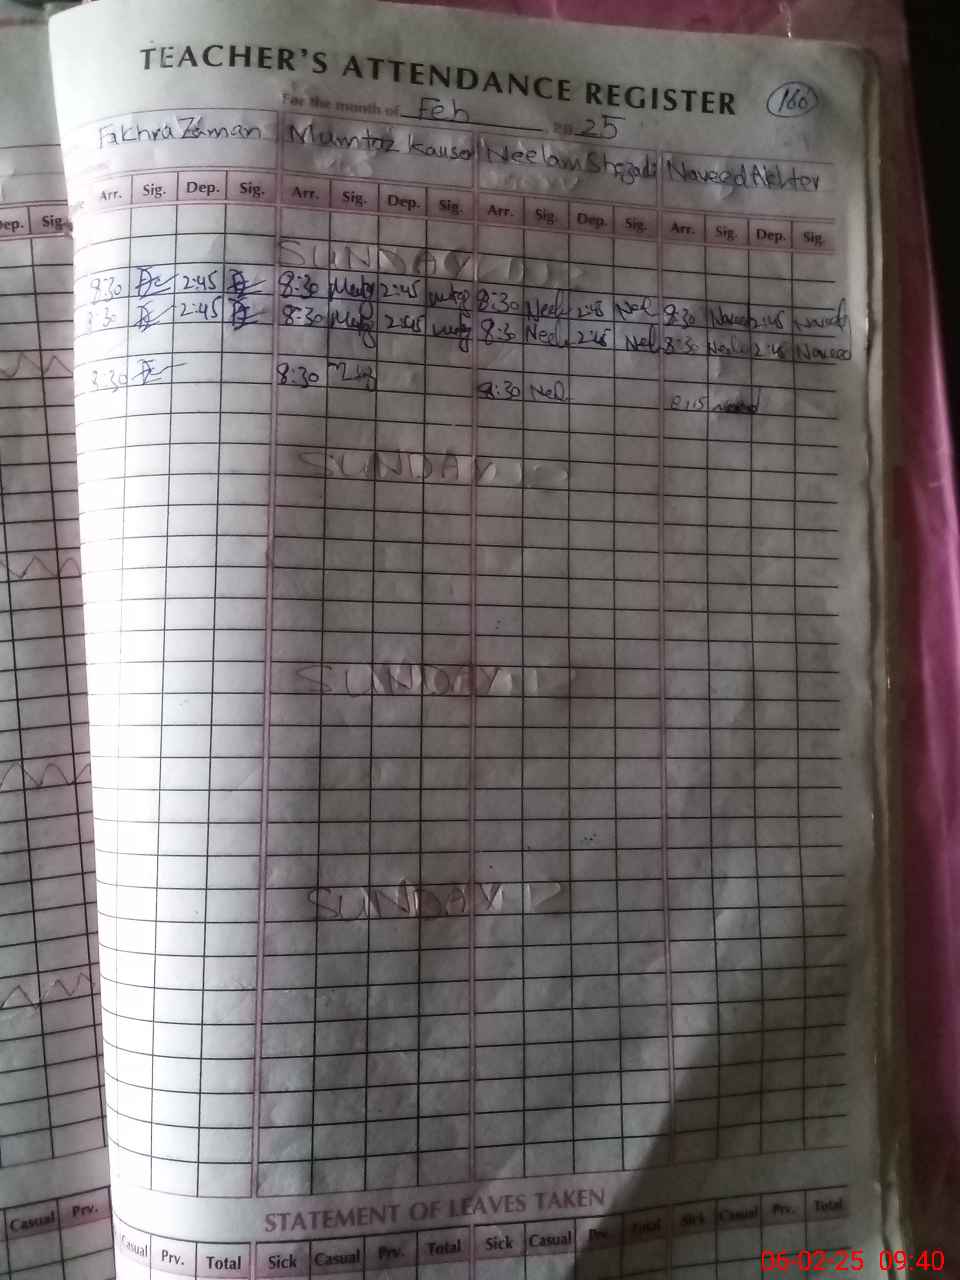 TEACHER'S ATTENDANCE REGISTER 160
For the month of Feb 2025
Fakhra Zaman Mumtaz Kauser Neelam Shezadi Naveed Akhter
Arr. Sig. Dep. Sig. Arr. Sig. Dep. Sig. Arr. Sig. Dep. Sig. Arr. Sig. Dep. Sig.
Dep. Sig.
SUNDAY
8:30 2:45 8:30 2:45 8:30 Neel 2:45 Nel 8:30 Naveed 2:45 Naveed
8:30 2:45 8:30 2:45 8:30 Neel 2:45 Nel 8:30 2:45 Naveed
8:30 8:30 8:30 Nel 8:15
SUNDAY
SUNDAY
SUNDAY
STATEMENT OF LEAVES TAKEN
Casual Prv. Casual Prv. Total Sick Casual Prv. Total Sick Casual Prv. Total Sick Casual Prv. Total
06-02-25 09:40